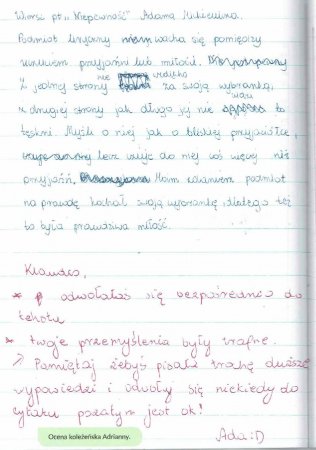 Wiersz pt „Niepewność" Adama Mickiewicza.
Podmiot liryczny waha się pomiędzy
uczuciem przyjaźni lub miłości.
Z jednej strony nie wzdycha za swoją wybranką,
z drugiej strony jak długo jej nie widzi to
tęskni. Myśli o niej jak o bliskiej przyjaciółce,
lecz czuje do niej coś więcej niż
przyjaźń. Moim zdaniem podmiot
na prawdę kochał swoją wybrankę, dlatego też
to była prawdziwa miłość.
odwołałaś się bezpośrednio do
tekstu
* twoje przemyślenia były trafne.
Pamiętaj żebyś pisała trochę dłuższe
wypowiedzi i odwoływ się niekiedy do
cytatu pozatym jest ok!
Ada :D
Ocena koleżeńska Adrianny.